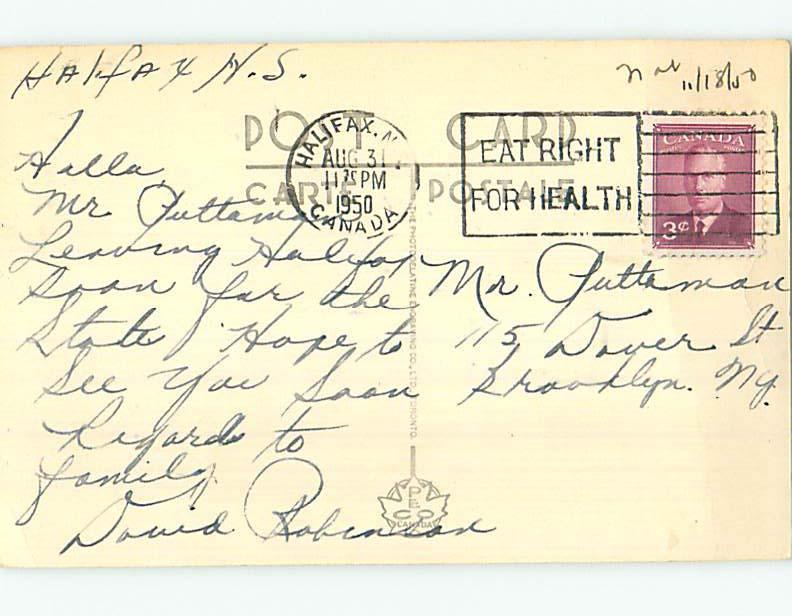 Halifax N.S.
11/18/50
POST CARD
CARTE POSTALE
HALIFAX, N.
AUG 31
11 PM
1950
CANADA
EAT RIGHT
FOR HEALTH
CANADA
3¢
Hallo
Mr Puttaman
Leaving Halifax
Soon for the
State Hope to
See You Soon
Regards to
family
David Robinson
Mr. Puttaman
115 Dover St
Brooklyn. Ny.
THE PHOTOGELATINE ENGRAVING CO., LTD. TORONTO.
PECO
CANADA